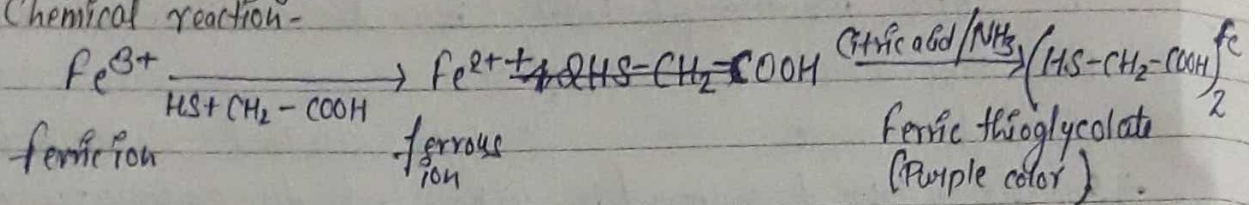 Chemical reaction-
Fe3+ → Fe2+ + 2HS-CH2-COOH Citric acid/NH3 → (HS-CH2-COOH)2 Fe
HS+CH2-COOH
ferric ion ferrous ion Ferric thioglycolate
(Purple color).